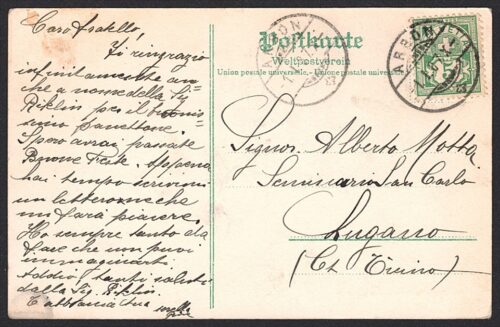 Caro fratello,
Ti ringrazio
infinitamente an=
che a nome della Sig=
Riklin per il buonis=
simo panettone.
Spero avrai passate
Buone Feste. Appena
hai tempo scrivimi
un letterone che
mi farà piacere.
Ho sempre tanto da
fare che non puoi
immaginarti.
Addio, tanti saluti
dalla Sig. Riklin.
T'abbraccia tua
Postkarte
Weltpostverein
Union postale universelle. Unione postale universale.
ARBON
ARBON
Signor Alberto Motta
Seminario San Carlo
Lugano
(Ct. Ticino)